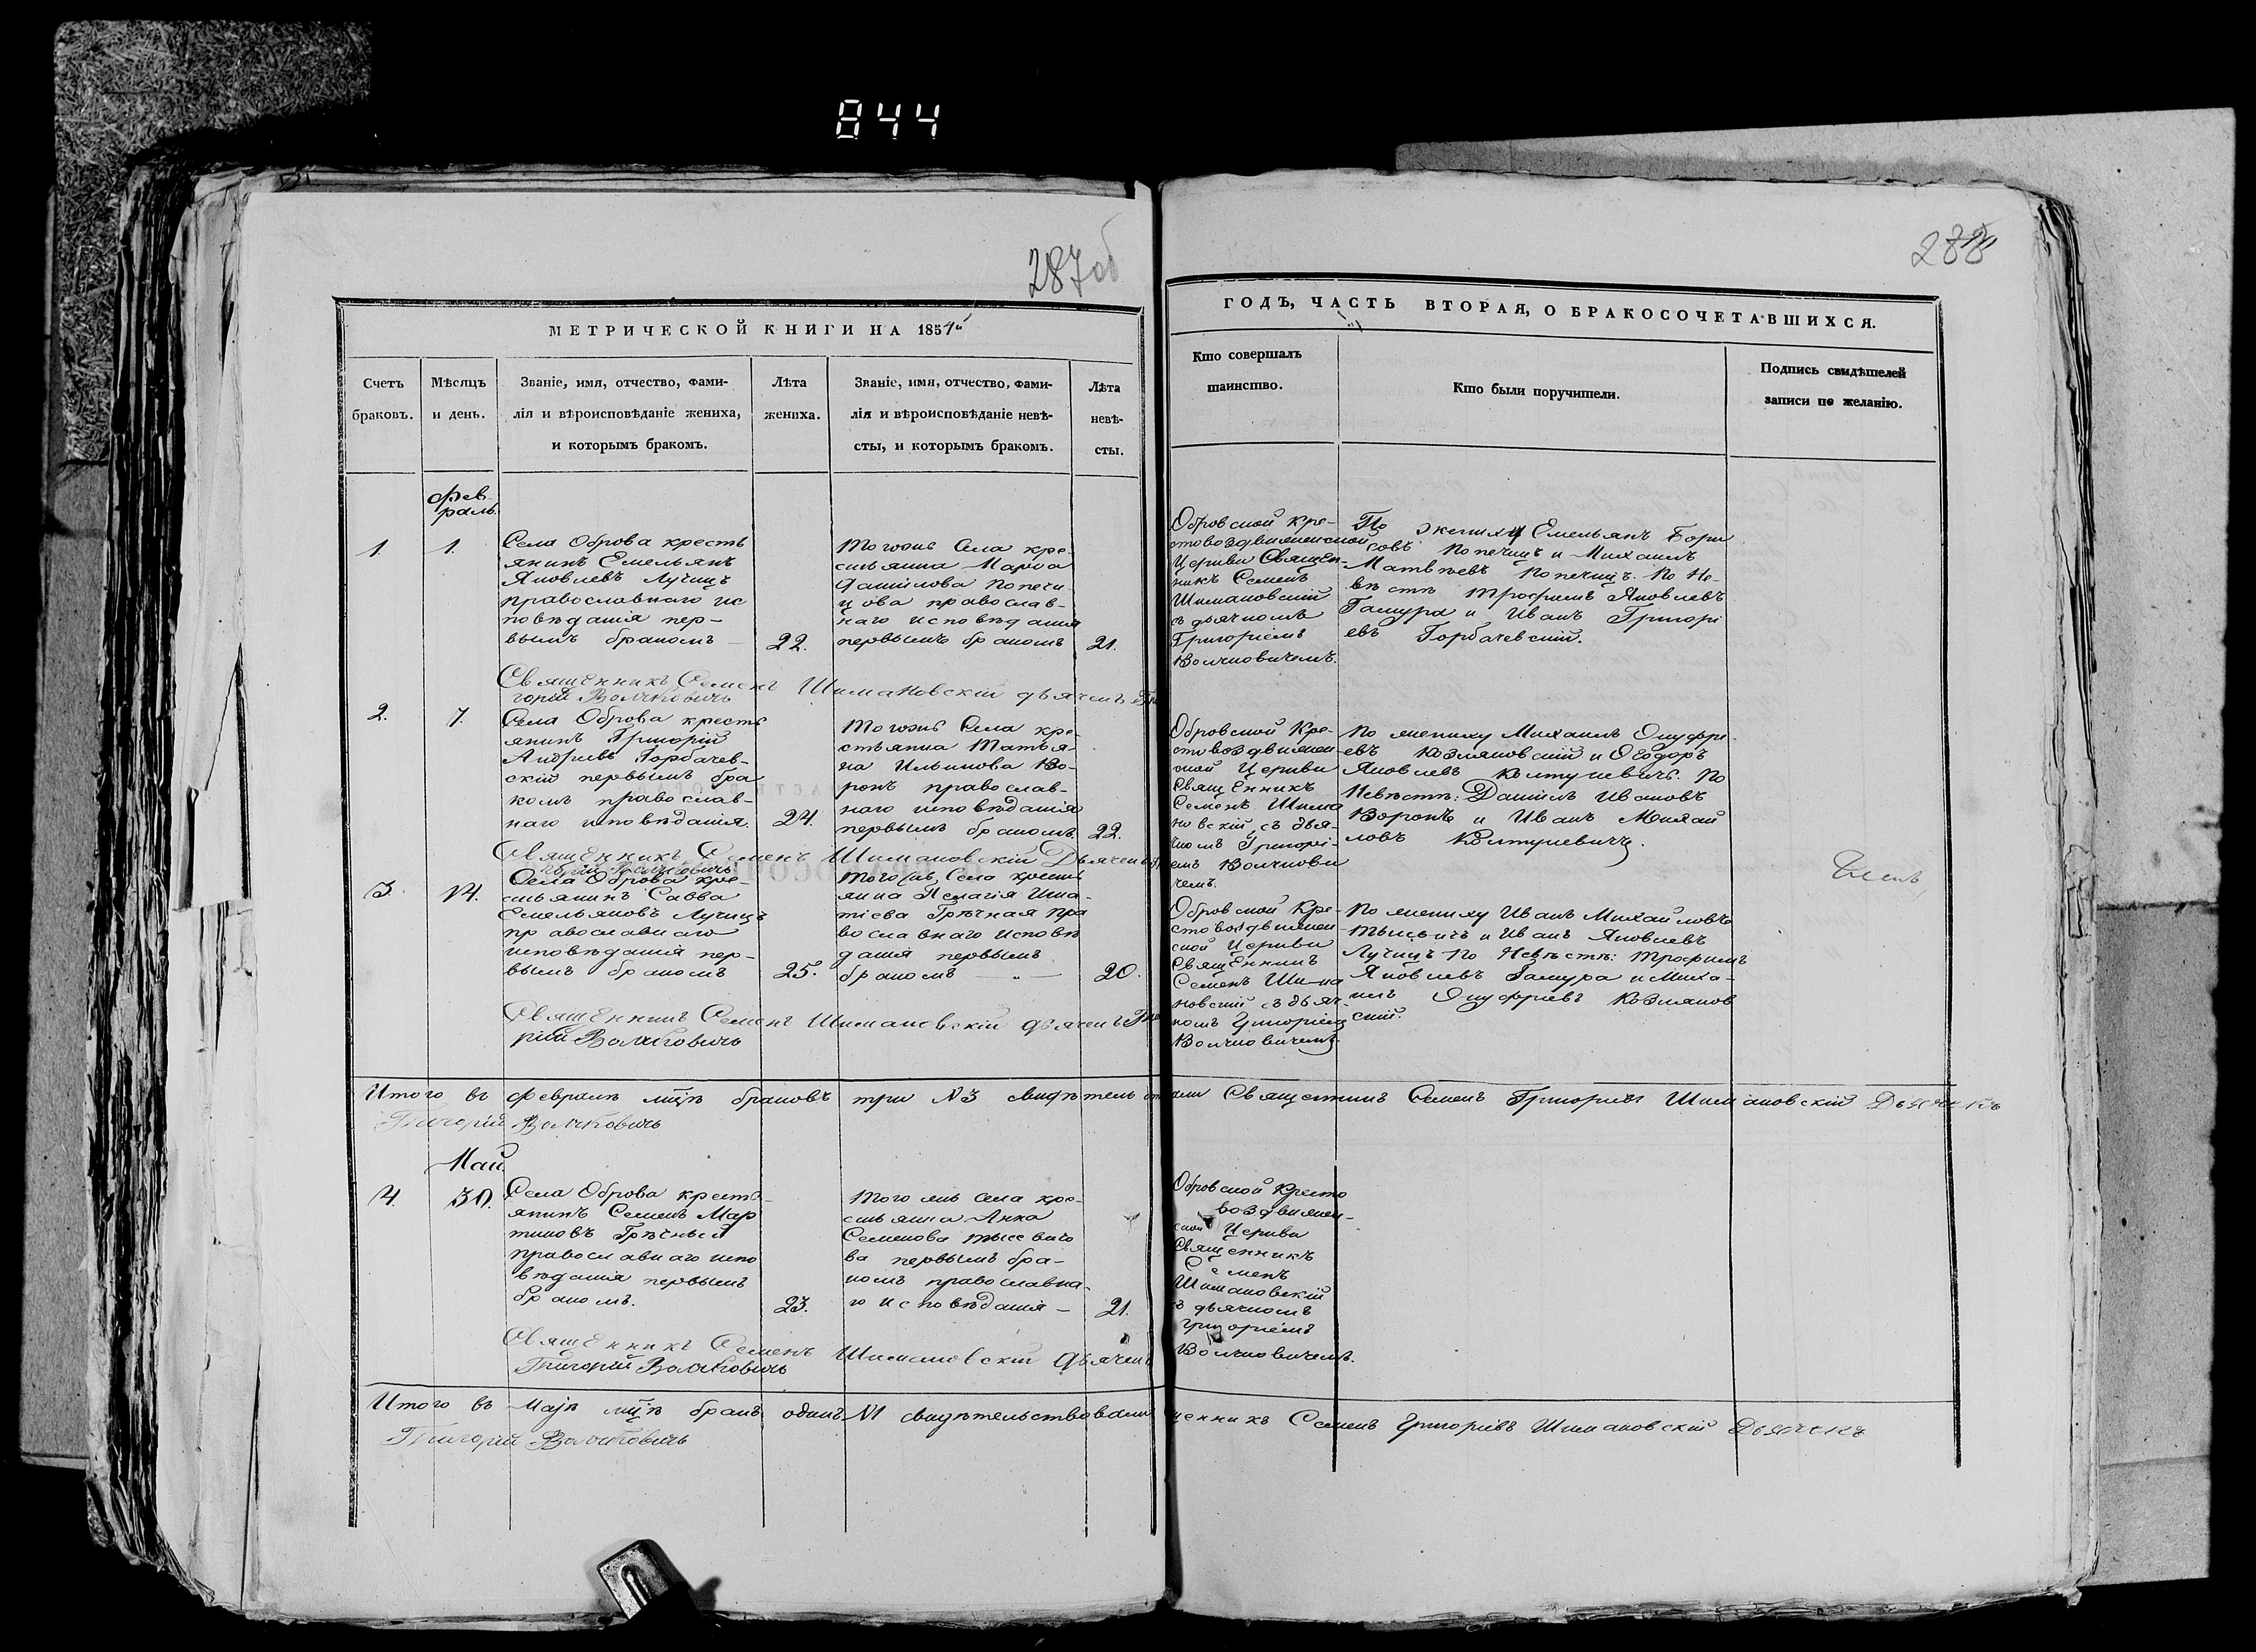 844
287об
288
МЕТРИЧЕСКОЙ КНИГИ НА 1851й
Счетъ
браковъ.
Мѣсяцъ
и день.
Званіе, имя, отчество, фами-
лія и вѣроисповѣданіе жениха,
и которымъ бракомъ.
Лѣта
жениха.
Званіе, имя, отчество, фами-
лія и вѣроисповѣданіе невѣ-
сты, и которымъ бракомъ.
Лѣта
невѣ-
сты.
ГОДЪ, ЧАСТЬ ВТОРАЯ, О БРАКОСОЧЕТАВШИХСЯ.
Кто совершалъ
таинство.
Кто были поручители.
Подпись свидѣтелей
записи по желанію.
Фев-
раль.
1.
1.
Села Оброва кресть
янинъ Емельянъ
Яковлевъ Лучицъ
православнаго ис
повѣданія пер-
вымъ бракомъ
22.
Тогоже Села кре-
стьянка Марѳа
Данилова Попечи
цова православ-
наго исповѣданія
первымъ бракомъ
21.
Обровской Кре-
стовоздвиженской
Церкви Священ-
никъ Семенъ
Шимановскій
съ дьячкомъ
Григоріемъ
Волчковичемъ.
По жениху Емельянъ Бори
совъ Попечицъ и Михаилъ
Матвѣевъ Попечицъ. По Не-
вѣстѣ Трофимъ Яковлевъ
Гамура и Иванъ Григорі
евъ Горбачевскій.
Священникъ Семенъ Шимановскій дьячекъ Гри
горій Волчковичъ
2.
7.
Села Оброва кресть
янинъ Григорій
Андреевъ Горбачев-
скій первымъ бра
комъ православ-
наго исповѣданія.
24.
Тогоже Села кре-
стьянка Татья-
на Ильинова Во-
ронъ православ-
наго исповѣданія
первымъ бракомъ.
22.
Обровской Кре-
стовоздвижен-
ской Церкви
Священникъ
Семенъ Шима
новскій съ дья-
чкомъ Григорі-
емъ Волчкови
чемъ.
По жениху Михаилъ Онуфрі-
евъ Козляковскій и Ѳеодоръ
Яковлевъ Колтуневичъ. По
Невѣстѣ: Даниилъ Ивановъ
Воронъ и Иванъ Михай
ловъ Колтуневичъ.
Священникъ Семенъ Шимановскій Дьячекъ Гри
горій Волчковичъ
3.
14.
Села Оброва кре-
стьянинъ Савва
Емельяновъ Лучицъ
православнаго
исповѣданія пер-
вымъ бракомъ
25.
Того же Села кресть
янка Пелагія Игна-
тіева Грѣчная пра
вославнаго исповѣ
данія первымъ
бракомъ
20.
Обровской Кре-
стовоздвижен-
ской Церкви
Священникъ
Семенъ Шима
новскій съ дьяч-
комъ Григоріемъ
Волчковичемъ.
По жениху Иванъ Михайловъ
и Иванъ Яковлевъ
Лучицъ по Невѣстѣ: Трофимъ
Яковлевъ Гамура и Миха-
илъ Онуфріевъ Козляков
скій.
Священникъ Семенъ Шимановскій дьячекъ Гри
рій Волчковичъ
Итого въ Февралѣ мцѣ браковъ три №3 свидѣтельствовали Священникъ Семенъ Григорьевъ Шимановскій Дьячекъ
Григорій Волчковичъ
Май
4.
30.
Села Оброва кресть-
янинъ Семенъ Мар
тиновъ Грѣчный
православнаго испо
вѣданія первымъ
бракомъ.
23.
Того же села кре-
стьянка Анна
Семенова
ва первымъ бра-
комъ православна-
го исповѣданія
21.
Обровской Кресто
воздвижен-
ской Церкви
Священникъ
Семенъ
Шимановскій
съ дьячкомъ
Григоріемъ
Волчковичемъ.
Священникъ Семенъ Шимановскій Дьячекъ
Григорій Волчковичъ
Итого въ Маѣ мцѣ бракъ одинъ №1 свидѣтельствовали Священникъ Семенъ Григорьевъ Шимановскій Дьячекъ
Григорій Волчковичъ